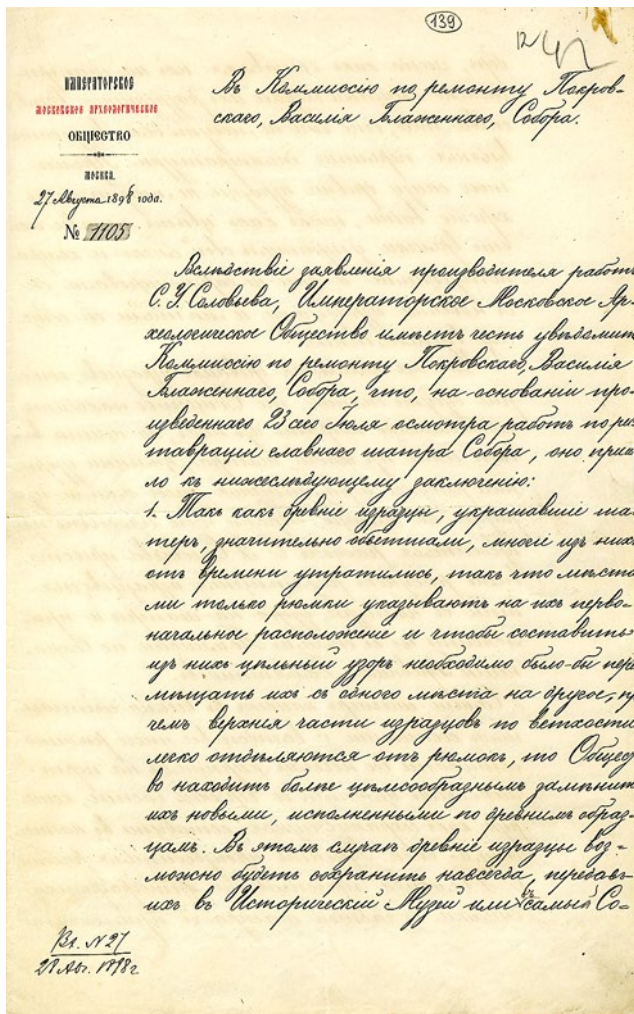 139
12
42
ИМПЕРАТОРСКОЕ
МОСКОВСКОЕ АРХЕОЛОГИЧЕСКОЕ
ОБЩЕСТВО
МОСКВА.
27 Августа 1898 года.
№ 1105
Въ Коммиссію по ремонту Покров-
скаго, Василія Блаженнаго, Собора.
Вслѣдствіе заявленія производителя работъ
С. У. Соловьева, Императорское Московское Ар-
хеологическое Общество имѣетъ честь увѣдомит
Коммиссію по ремонту Покровскаго, Василія
Блаженнаго, Собора, что, на основаніи про-
изведеннаго 23 сего Іюля осмотра работъ по рес
тавраціи главнаго шатра Собора, оно приш
ло къ нижеслѣдующему заключенію:
1. Такъ какъ древніе изразцы, украшавшіе ша-
теръ, значительно обветшали, многіе изъ нихъ
отъ времени утратились, такъ что мѣста
ми только рюмки указываютъ на ихъ перво-
начальное расположеніе и чтобы составить
изъ нихъ цѣльный узоръ необходимо было-бы пере
мѣщать ихъ съ одного мѣста на другое, пр
чемъ верхнія части изразцовъ по ветхости
легко отдѣляются отъ рюмокъ, то Общест
во находитъ болѣе цѣлесообразнымъ замѣнит
ихъ новыми, исполненными по древнимъ образ-
цамъ. Въ этомъ случаѣ древніе изразцы воз-
можно будетъ сохранить навсегда, передавъ
ихъ въ Историческій Музей или въ самый Со-
Вх. № 27
28 Авг. 1898 г.